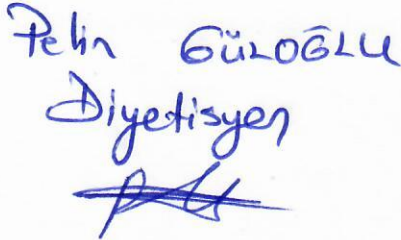 Pelin GÜLOĞLU
Diyetisyen